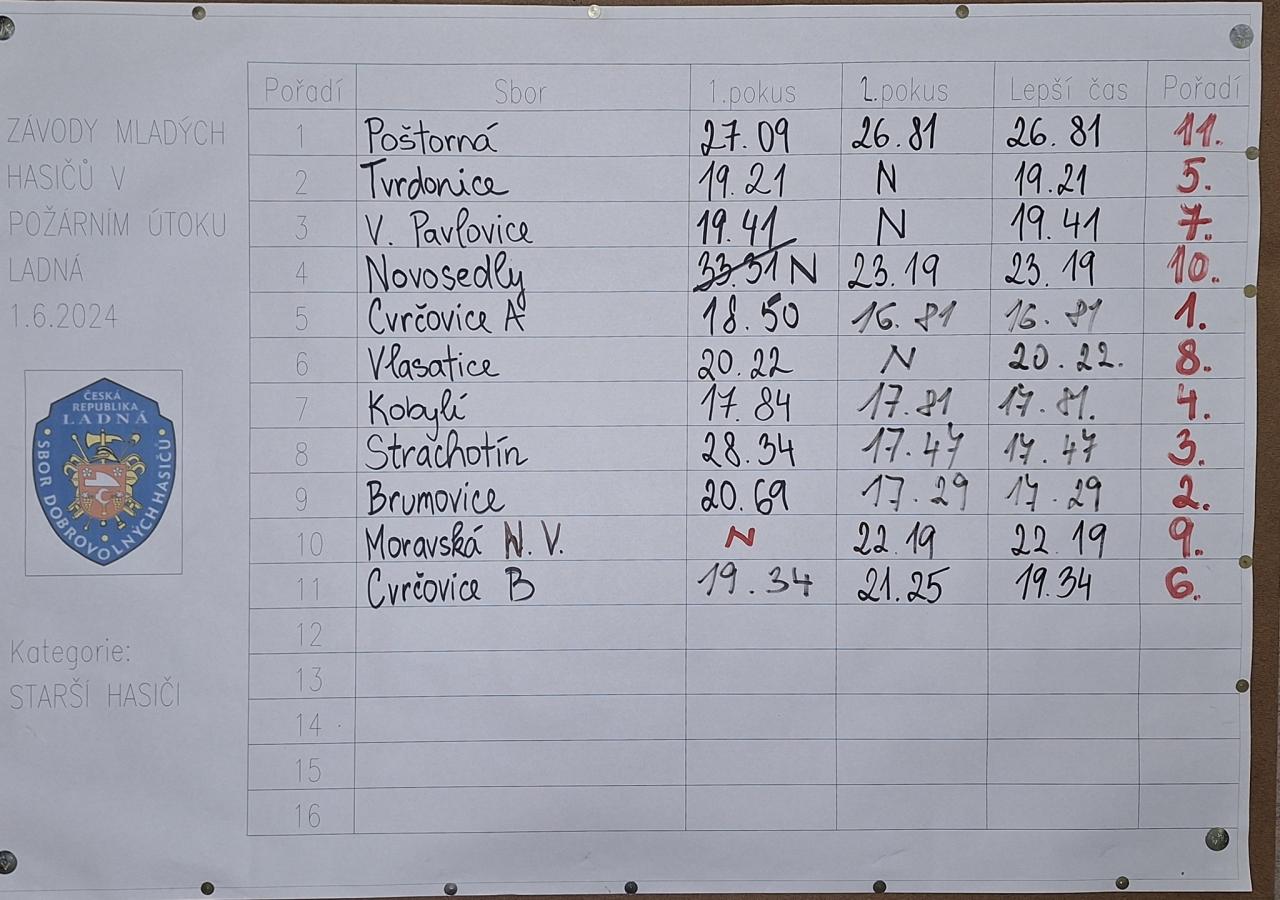 ZÁVODY MLADÝCH
HASIČŮ V
POŽÁRNÍM ÚTOKU
LADNÁ
1.6.2024
ČESKÁ
REPUBLIKA
LADNÁ
SBOR DOBROVOLNÝCH HASIČŮ
Kategorie:
STARŠÍ HASIČI
Pořadí Sbor 1.pokus 2.pokus Lepší čas Pořadí
1 Poštorná 27.09 26.81 26.81 11.
2 Tvrdonice 19.21 N 19.21 5.
3 V. Pavlovice 19.41 N 19.41 7.
4 Novosedly 33.31 N 23.19 23.19 10.
5 Cvrčovice A 18.50 16.81 16.81 1.
6 Vlasatice 20.22 N 20.22. 8.
7 Kobylí 17.84 17.81 17.81. 4.
8 Strachotín 28.34 17.47 17.47 3.
9 Brumovice 20.69 17.29 17.29 2.
10 Moravská N.V. N 22.19 22.19 9.
11 Cvrčovice B 19.34 21.25 19.34 6.
12
13
14
15
16